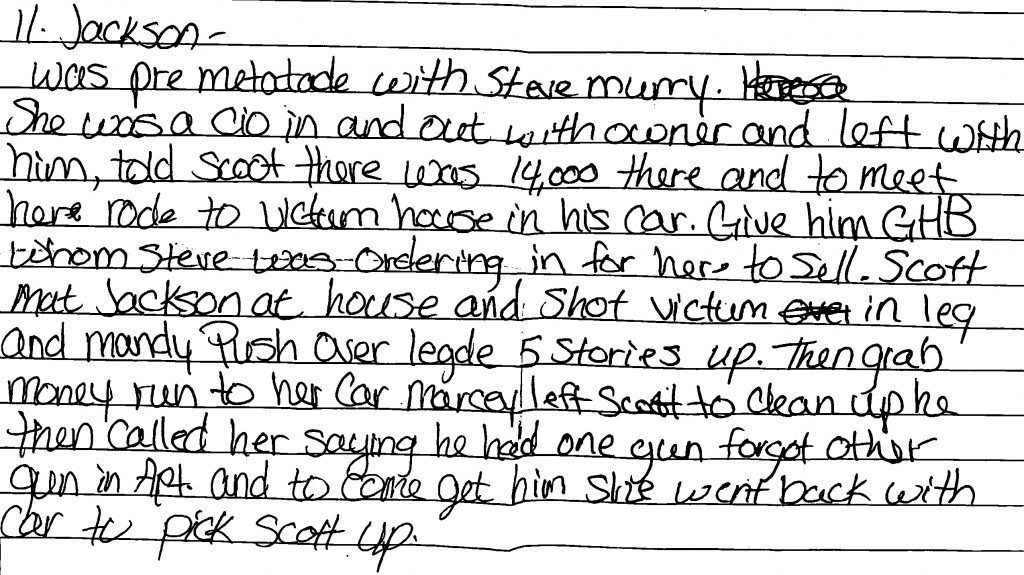 11. Jackson-
was pre metotade with Steve murry.
She was a Cio in and out with owner and left with
him, told Scoot there was 14,000 there and to meet
here rode to Victum house in his car. Give him GHB
whom Steve was ordering in for her to Sell. Scott
mat Jackson at house and Shot victum over in leg
and mandy Push Over legde 5 Stories up. Then grab
money run to her Car Marcey left Scott to Clean up he
then Called her saying he had one gun forgot other
gun in Apt. and to Come get him She went back with
Car to pick Scott up.